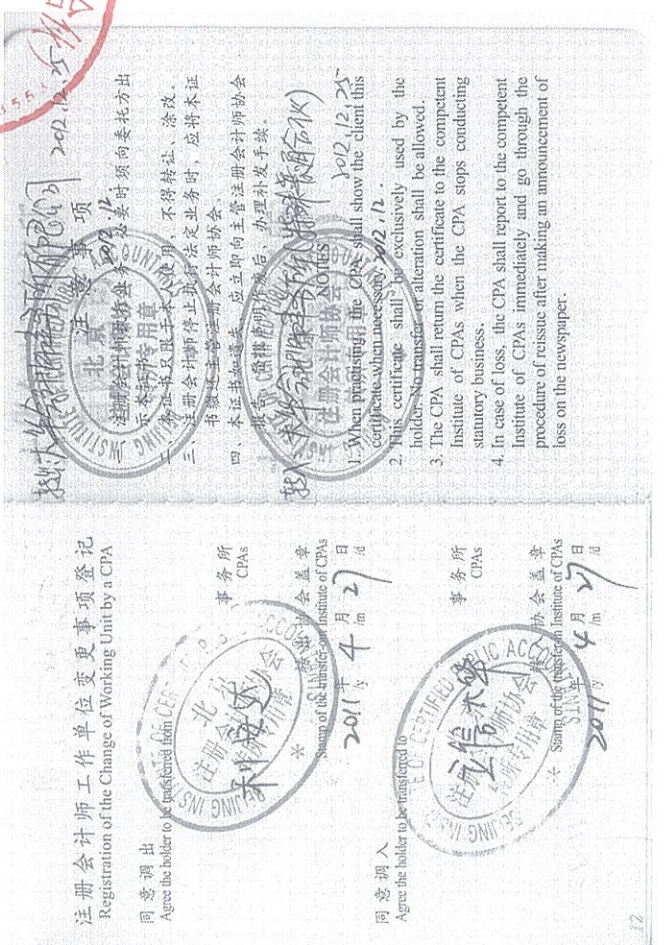 注册会计师工作单位变更事项登记
Registration of the Change of Working Unit by a CPA
同意调出
Agree the holder to be transferred from
事务所
CPAs
转出协会盖章
Stamp of the transfer-out Institute of CPAs
2011 年 4 月 27 日
/y /m /d
同意调入
Agree the holder to be transferred to
事务所
CPAs
转入协会盖章
Stamp of the transfer-in Institute of CPAs
2011 年 4 月 27 日
/y /m /d
12
2012.12.25
注意事项
一、注册会计师执行业务,必要时须向委托方出
示本证书。
二、本证书只限于本人使用,不得转让、涂改。
三、注册会计师停止执行法定业务时,应将本证
书缴还主管注册会计师协会。
四、本证书如遗失,应立即向主管注册会计师协会
报告,登报声明作废后,办理补发手续。
2012.12.25
NOTES
1. When practising, the CPA shall show the client this
certificate when necessary.
2. This certificate shall be exclusively used by the
holder. No transfer or alteration shall be allowed.
3. The CPA shall return the certificate to the competent
Institute of CPAs when the CPA stops conducting
statutory business.
4. In case of loss, the CPA shall report to the competent
Institute of CPAs immediately and go through the
procedure of reissue after making an announcement of
loss on the newspaper.